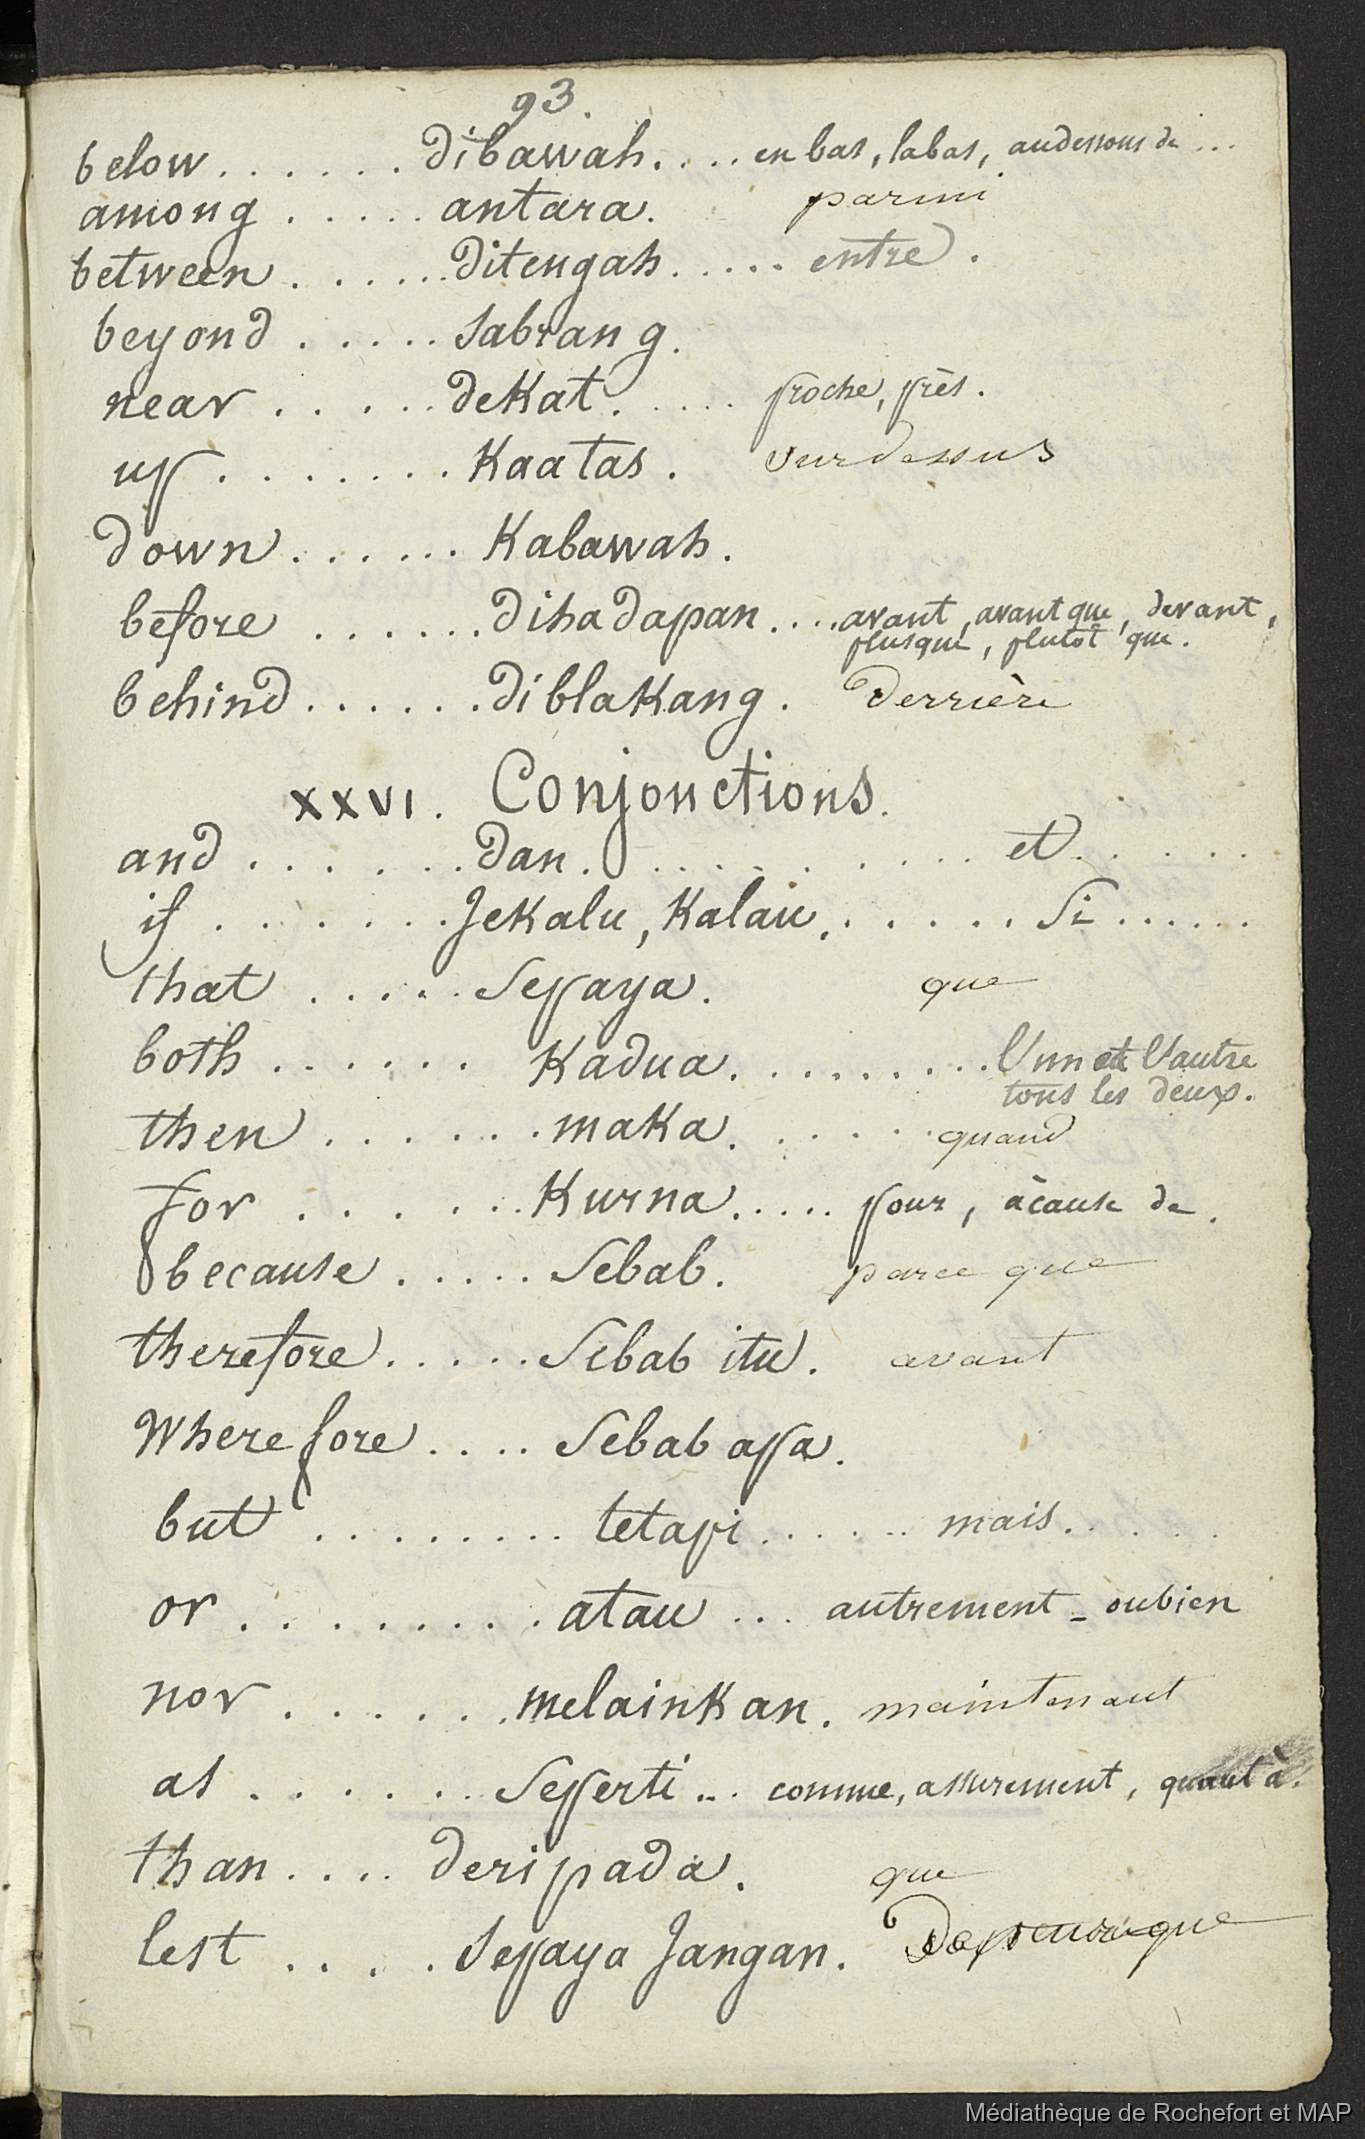 93.
below . . . . . . dibawah. . . . . en bas, labas, audessous de ...
among . . . . . antara. parmi
between . . . . . . ditengah . . . . . entre .
beyond . . . . . sabrang.
near . . . . . dekat . . . . . . proche, près .
up . . . . . . . Kaatas . surdessus
down . . . . . . Kabawah .
before . . . . . . dihadapan . . . . avant, avant que, devant,
plusque, plutot que .
behind . . . . . . diblakang . Derrière
XXVI. Conjonctions.
and . . . . . . dan . . . . . . . . . . et . . . . . .
if . . . . . . . Jekalu, Kalau, . . . . . . Si . . . . . .
that . . . . . Sepaya . que
both . . . . . . Kadua . . . . . . . . . l'un et l'autre
tous les deux .
then . . . . . . . maka . . . . . . quand
for . . . . . . Kurna . . . . . pour, àcause de .
because . . . . . Sebab . parce que
therefore . . . . . Sebab itu . avant
Wherefore . . . . Sebab apa .
but . . . . . . . . . tetapi . . . . . . mais . . . . .
or . . . . . . . . atau . . . autrement - oubien
nor . . . . . . . melainkan . maintenant
as . . . . . . Seperti ... comme, assurement, quant à .
than . . . . deripada . que
lest . . . . Sepaya Jangan .
Médiathèque de Rochefort et MAP